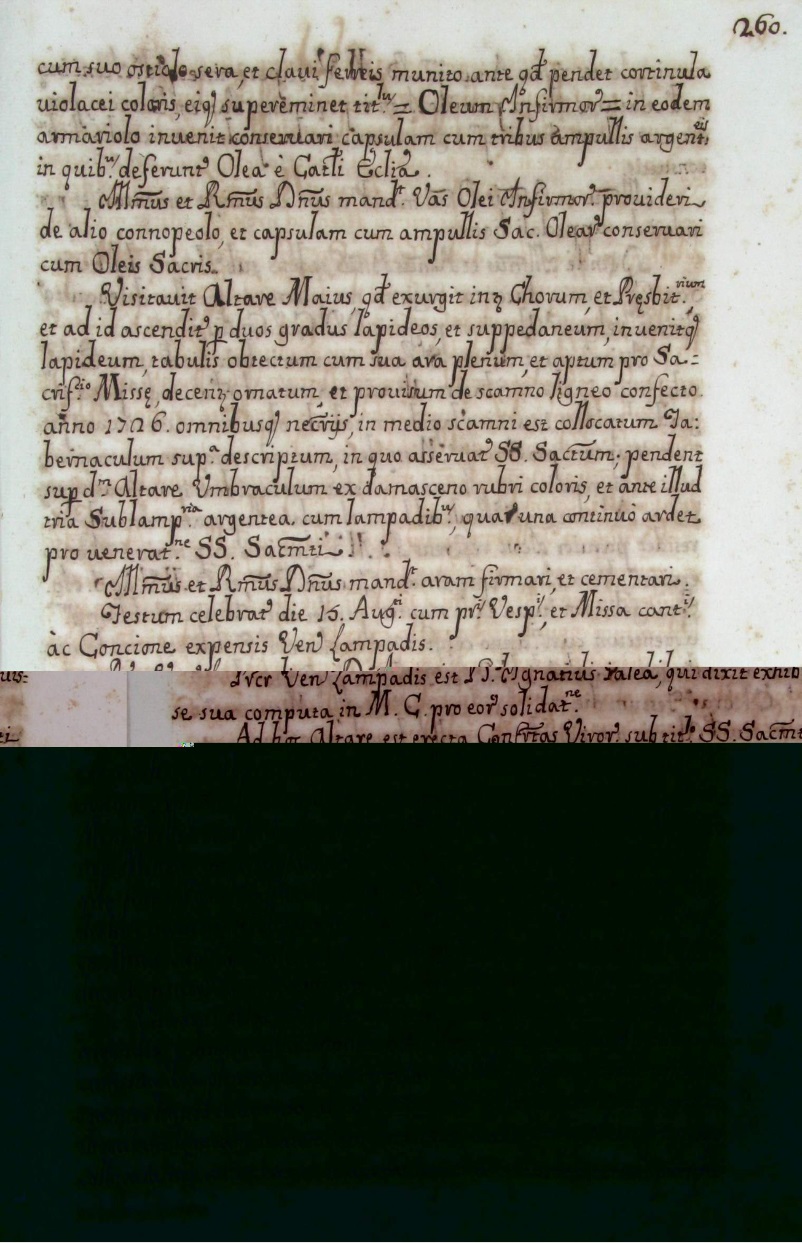 260.
cum suo ostiolo sera, et claui ferreis munito ante qd pendet cortinula
uiolacei coloris, eiq. supereminet tit.us = Oleum Infirmor. = in eodem
armariolo inuenit conseruari capsulam cum tribus ampullis argent.eis
in quib.s deferunt.r Olea è Catli Eclia.
Illmus et Rmus Dnus mand.t Vas Olei Infirmor. prouideri
de alio connopeolo, et capsulam cum ampullis Sac. Olear. conseruari
cum Oleis Sacris.
Visitauit Altare Maius, qd exurgit int. Chorum, et Pręsbit.rium
et ad id ascendit.r p duos gradus lapideos, et suppedaneum, inuenitq.
lapideum, tabulis obtectum cum sua ara plenum, et aptum pro Sa-
crif.io Missę, decent. ornatum, et prouisum de scamno ligneo confecto
anno 1726. omnibusq. necrijs, in medio scamni est collocatum Ta:
bernaculum sup.a descriptum, in quo asseruat.r SS. Sactum; pendent
sup d.m Altare Vmbraculum ex damasceno rubri coloris, et ante illud
tria Sublamp.ria argentea cum lampadib.s, quar. una continuò ardet
pro uenerat.ne SS. Sacmti.
Illmus et Rmus Dnus mand.t aram firmari, et cementari.
Festum celebrat.r die 15. Aug.i cum pr.is Vesp.is, et Missa cant.is
àc Concione expensis Ven. Lampadis.
Ven. Lampadis est Ignatius Galea, qui dixit exhib
se sua computa in M. C. pro eor. solidat.ne
Ad hoc Altare est erecta Confrtas Viror. sub tit.o SS. Sacmt